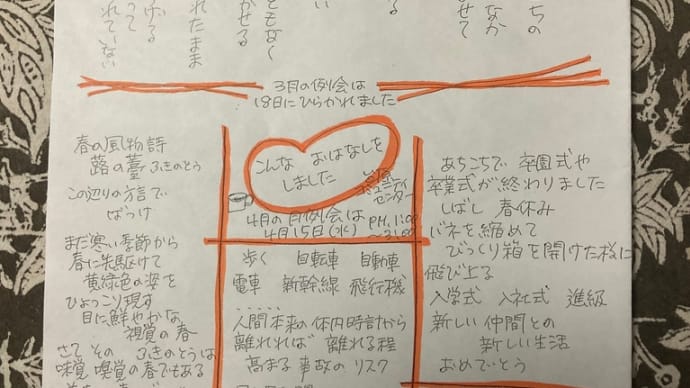 ちの
なか
せて
る
ともなく
かせる
れたまま
げる
って
れていない
3月の例会は
18日にひらかれました
春の風物詩
蕗の薹 ふきのとう
この辺りの方言で
ばっけ
まだ寒い季節から
春に先駆けて
黄緑色の姿を
ひょっこり現す
目に鮮やかな
視覚の春
さて その ふきのとうは
味覚 嗅覚の春でもある
こんな おはなしを
しました
コミュニティ
センター
4月の自例会は
4月15日(水)
PM.1:00
～3:00
歩く 自転車 自動車
電車 新幹線 飛行機
……
人間本来の体内時計から
離れれば 離れる程
高まる 事故の リスク
あちこちで 卒園式や
卒業式が終わりました
しばし 春休み
バネを縮めて
びっくり箱を開けた様に
飛び上る
入学式 入社式 進級
新しい 仲間との
新しい生活
おめでとう